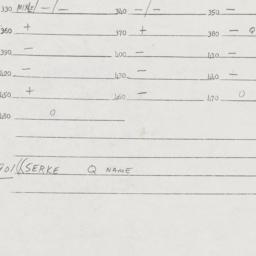 330 MIKE/ - / - 340 - / - 350 -
360 + 370 + 380 - Q
390 - 400 - 410 -
420 - 430 - 440 -
450 + 460 - 470 0
480 0
701 ((SERKE Q NAME